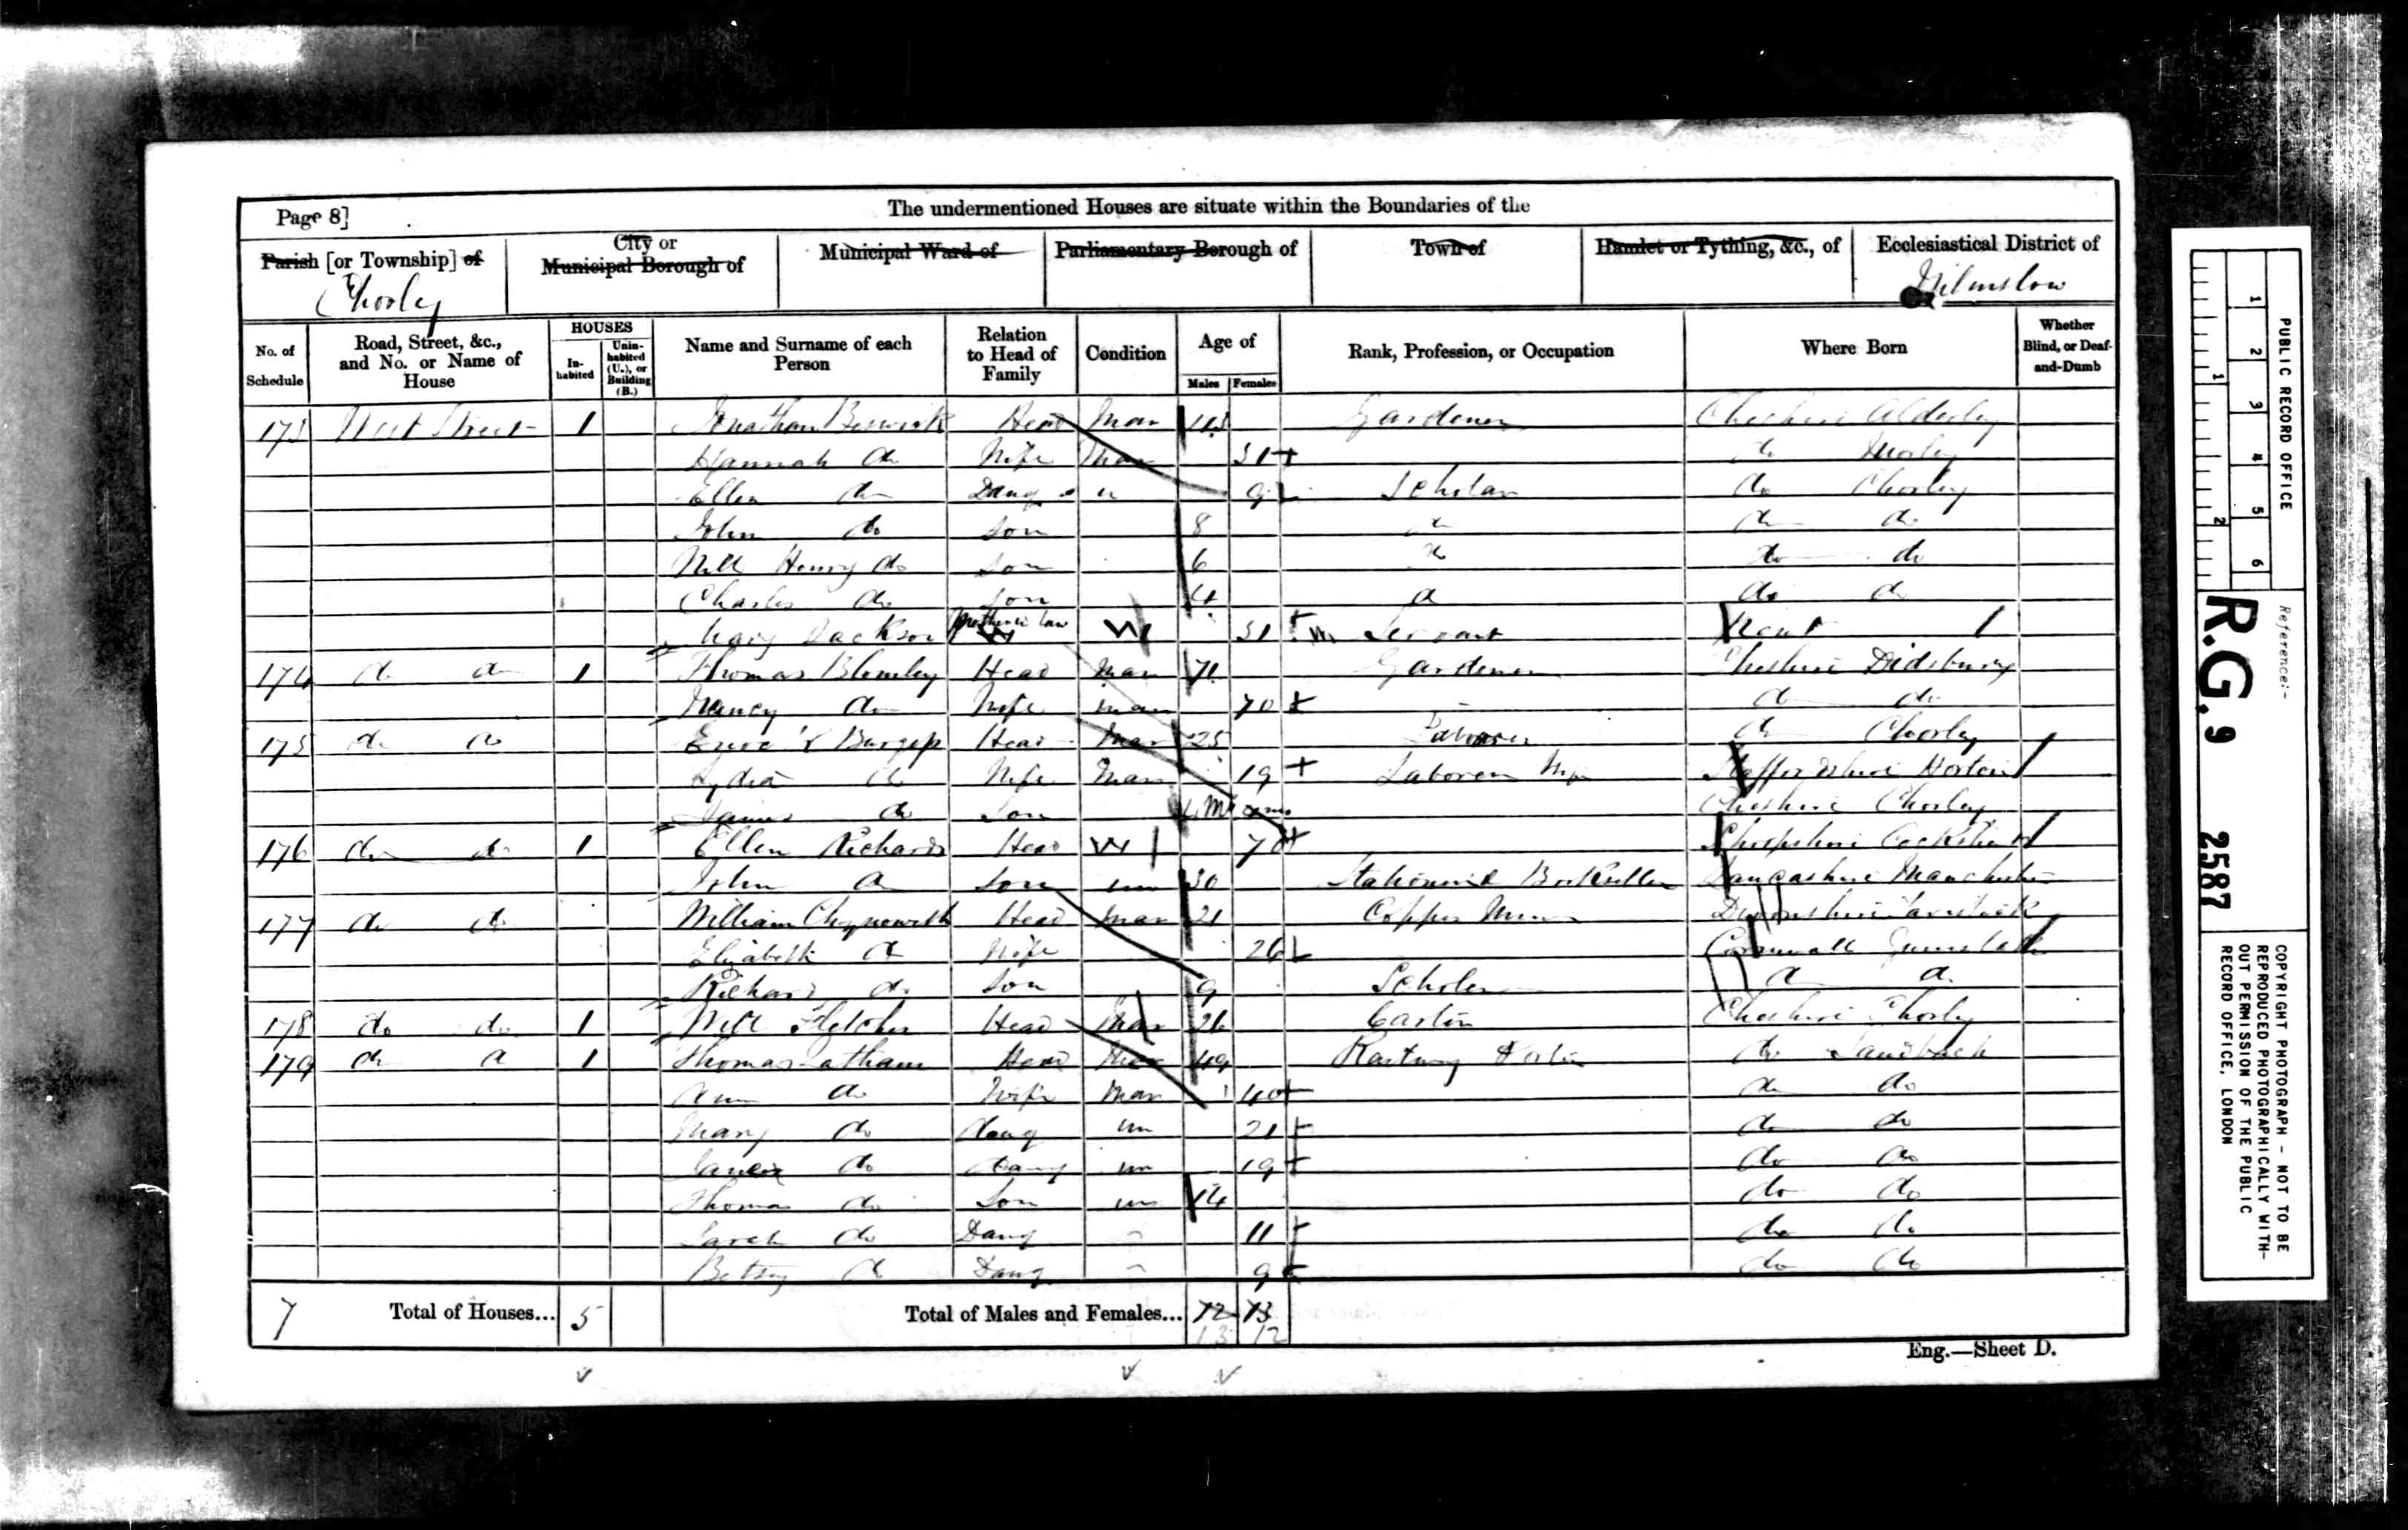 Page 8]
The undermentioned Houses are situate within the Boundaries of the
Parish [or Township] of
Chorley
City or
Municipal Borough of
Municipal Ward of
Parliamentary Borough of
Town of
Hamlet or Tything, &c., of
Ecclesiastical District of
Wilmslow
No. of Schedule
Road, Street, &c., and No. or Name of House
HOUSES
In-habited
Unin-habited (U.), or Building (B.)
Name and Surname of each Person
Relation to Head of Family
Condition
Age of
Males
Females
Rank, Profession, or Occupation
Where Born
Whether Blind, or Deaf-and-Dumb
173 West Street 1 Jonathan Beswick Head Mar Gardener Cheshire Alderley
Hannah do Wife Mar do
Ellen do Daug un 9 Scholar do Chorley
John do Son 8 do do do
Will Henry do Son 6 do do do
Charles do Son 4 do do do
Mary Jackson W 51 Servant
174 do do 1 Thomas Blomley Head Mar 71 Gardener Cheshire Didsbury
Nancy do Wife Mar 70 do do
175 do do Burgess Head Mar 25 Laborer do Chorley
Lydia do Wife Mar 19 Laborers Wife Staffordshire Horton
James do Son Cheshire Chorley
176 do do 1 Ellen Richards Head W 70 Shropshire
John do Son un 30 Stationer & Bookseller Lancashire Manchester
177 do do William Chynoweth Head Mar 21 Copper Miner Devonshire Tavistock
Elizabeth do Wife 26 Cornwall
Richard do Son 9 Scholar do do
178 do do 1 Will Fletcher Head Mar 26 Carter Cheshire Chorley
179 do do 1 Thomas Latham Head Mar 49 Railway Porter do Sandbach
Ann do Wife Mar 40 do do
Mary do daug un 21 do do
do Daug un 19 do do
Thomas do Son un 14 do do
Sarah do Daug 11 do do
Betsy do Daug 9 do do
7 Total of Houses... 5
Total of Males and Females... 12 13
13 12
Eng.—Sheet D.
PUBLIC RECORD OFFICE
1 2 3 4 5 6
1 2
Reference:-
R.G. 9 2587
COPYRIGHT PHOTOGRAPH - NOT TO BE
REPRODUCED PHOTOGRAPHICALLY WITH-
OUT PERMISSION OF THE PUBLIC
RECORD OFFICE, LONDON